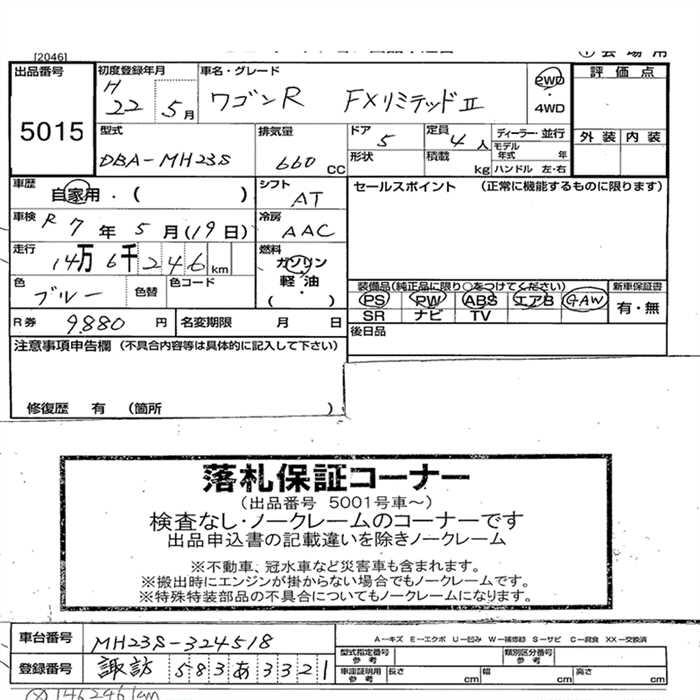 [2046]
出品番号
5015
初度登録年月
H 22 5月
車名・グレード
ワゴンR FXリミテッドⅡ
2WD
・
4WD
評価点
外装 内装
型式
DBA-MH23S
排気量
660 CC
ドア 5
形状
定員 4人
積載 kg
ディーラー・並行
モデル年式 年
ハンドル 左・右
車歴
自家用・( )
シフト
AT
セールスポイント (正常に機能するものに限ります)
車検 R 7年5月(19日)
冷房
AAC
走行
14万6千246km
燃料
ガソリン
軽・油
( )
色
ブルー
色替
色コード
装備品(純正品に限り○をつけてください)
PS PW ABS エアB AAW
SR ナビ TV
新車保証書
有・無
R券 9.880円
名変期限 月 日
後日品
注意事項申告欄 (不具合内容等は具体的に記入して下さい)
修復歴 有 (箇所 )
落札保証コーナー
(出品番号 5001号車~)
検査なし・ノークレームのコーナーです
出品申込書の記載違いを除きノークレーム
※不動車、冠水車など災害車も含まれます。
※搬出時にエンジンが掛からない場合でもノークレームです。
※特殊特装部品の不具合についてもノークレームになります。
車台番号 MH23S-324518
A-キズ E-エクボ U-凹み W-補修跡 S-サビ C-腐食 XX-交換済
型式指定番号 参考
類別区分番号 参考
登録番号 諏訪 583あ3321
車庫証明用 参考 長さ cm 幅 cm 高さ cm
146246km